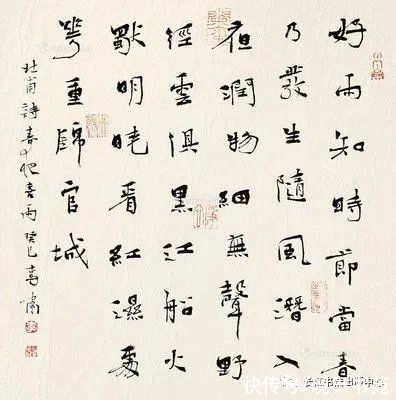 好雨知時節當春
乃發生隨風潛入
夜潤物細無聲野
徑雲俱黑江船火
獨明曉看紅濕處
花重錦官城
杜甫詩春夜喜雨癸巳
快传号